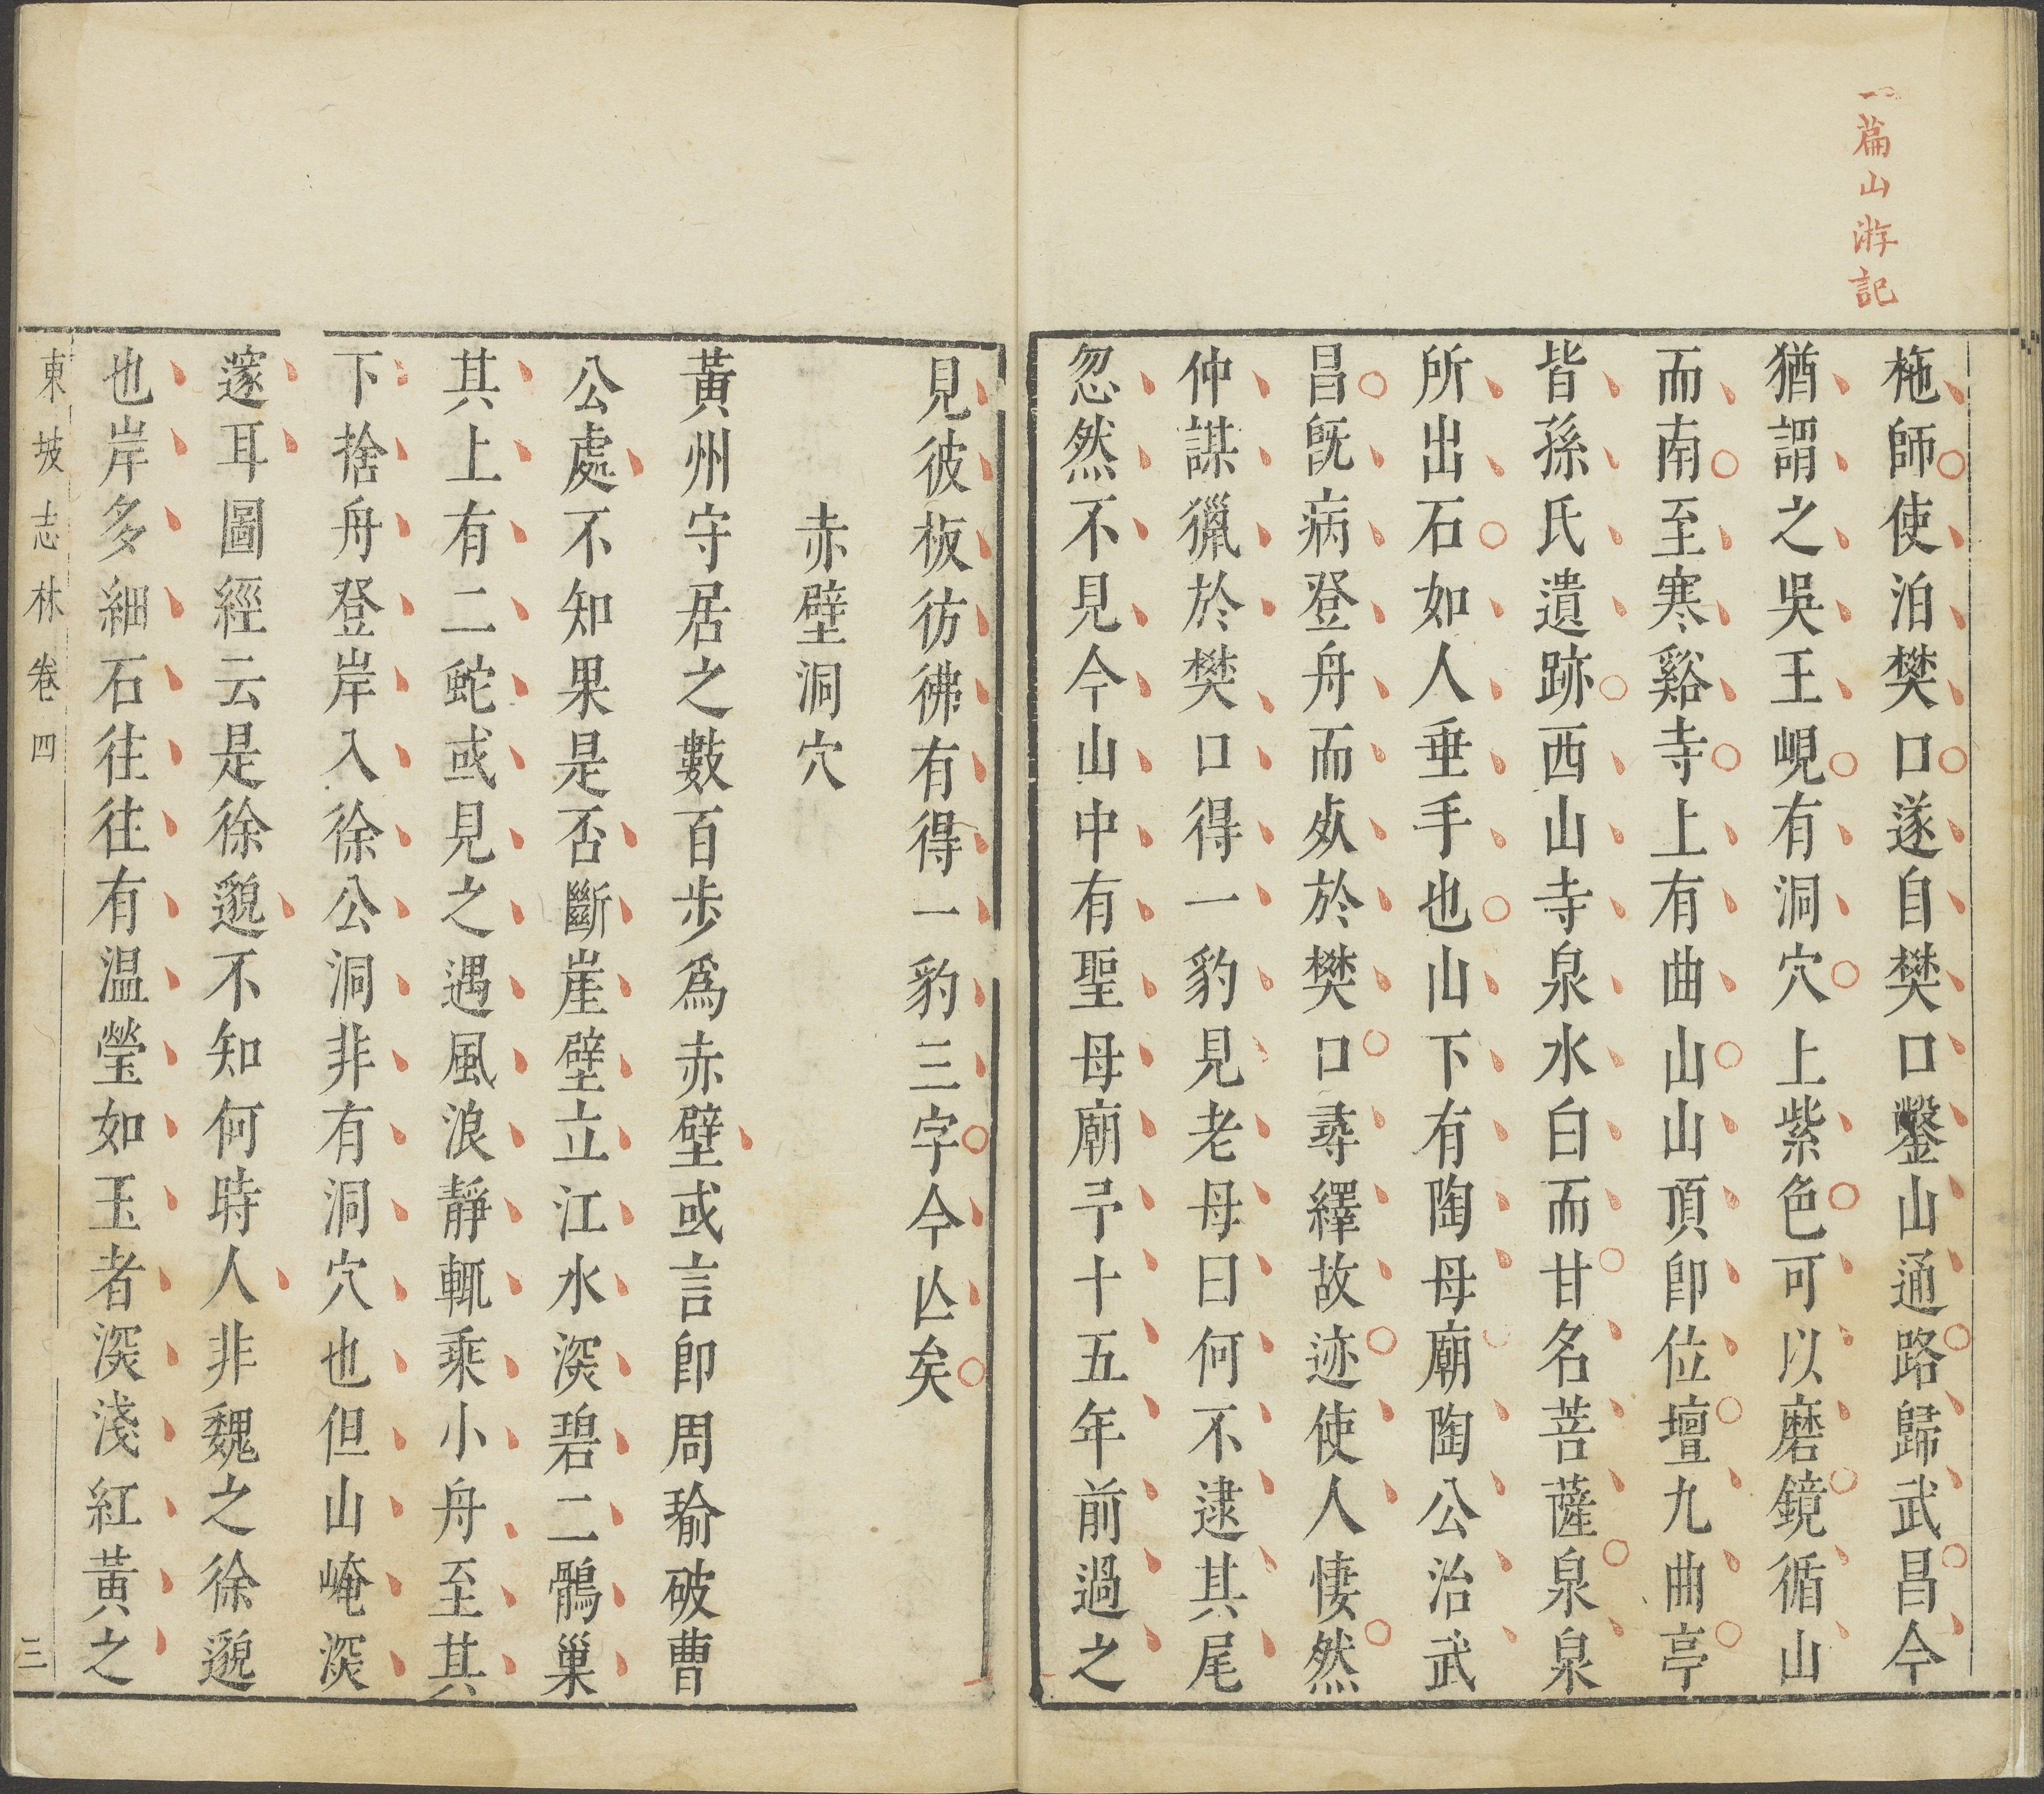 一篇山游記
柂師使泊樊口遂自樊口鑿山通路歸武昌今
猶謂之吳王峴有洞穴上紫色可以磨鏡循山
而南至寒谿寺上有曲山山頂卽位壇九曲亭
皆孫氏遺跡西山寺泉水白而甘名菩薩泉泉
所出石如人垂手也山下有陶母廟陶公治武
昌旣病登舟而死於樊口尋繹故迹使人悽然
仲謀獵於樊口得一豹見老母曰何不逮其尾
忽然不見今山中有聖母廟予十五年前過之
見彼板彷彿有得一豹三字今亾矣
赤壁洞穴
黃州守居之數百步爲赤壁或言卽周瑜破曹
公處不知果是否斷崖壁立江水深碧二鶻巢
其上有二蛇或見之遇風浪靜輒乘小舟至其
下捨舟登岸入徐公洞非有洞穴也但山崦深
邃耳圖經云是徐邈不知何時人非魏之徐邈
也岸多細石往往有温瑩如玉者深淺紅黃之
東坡志林卷四
三